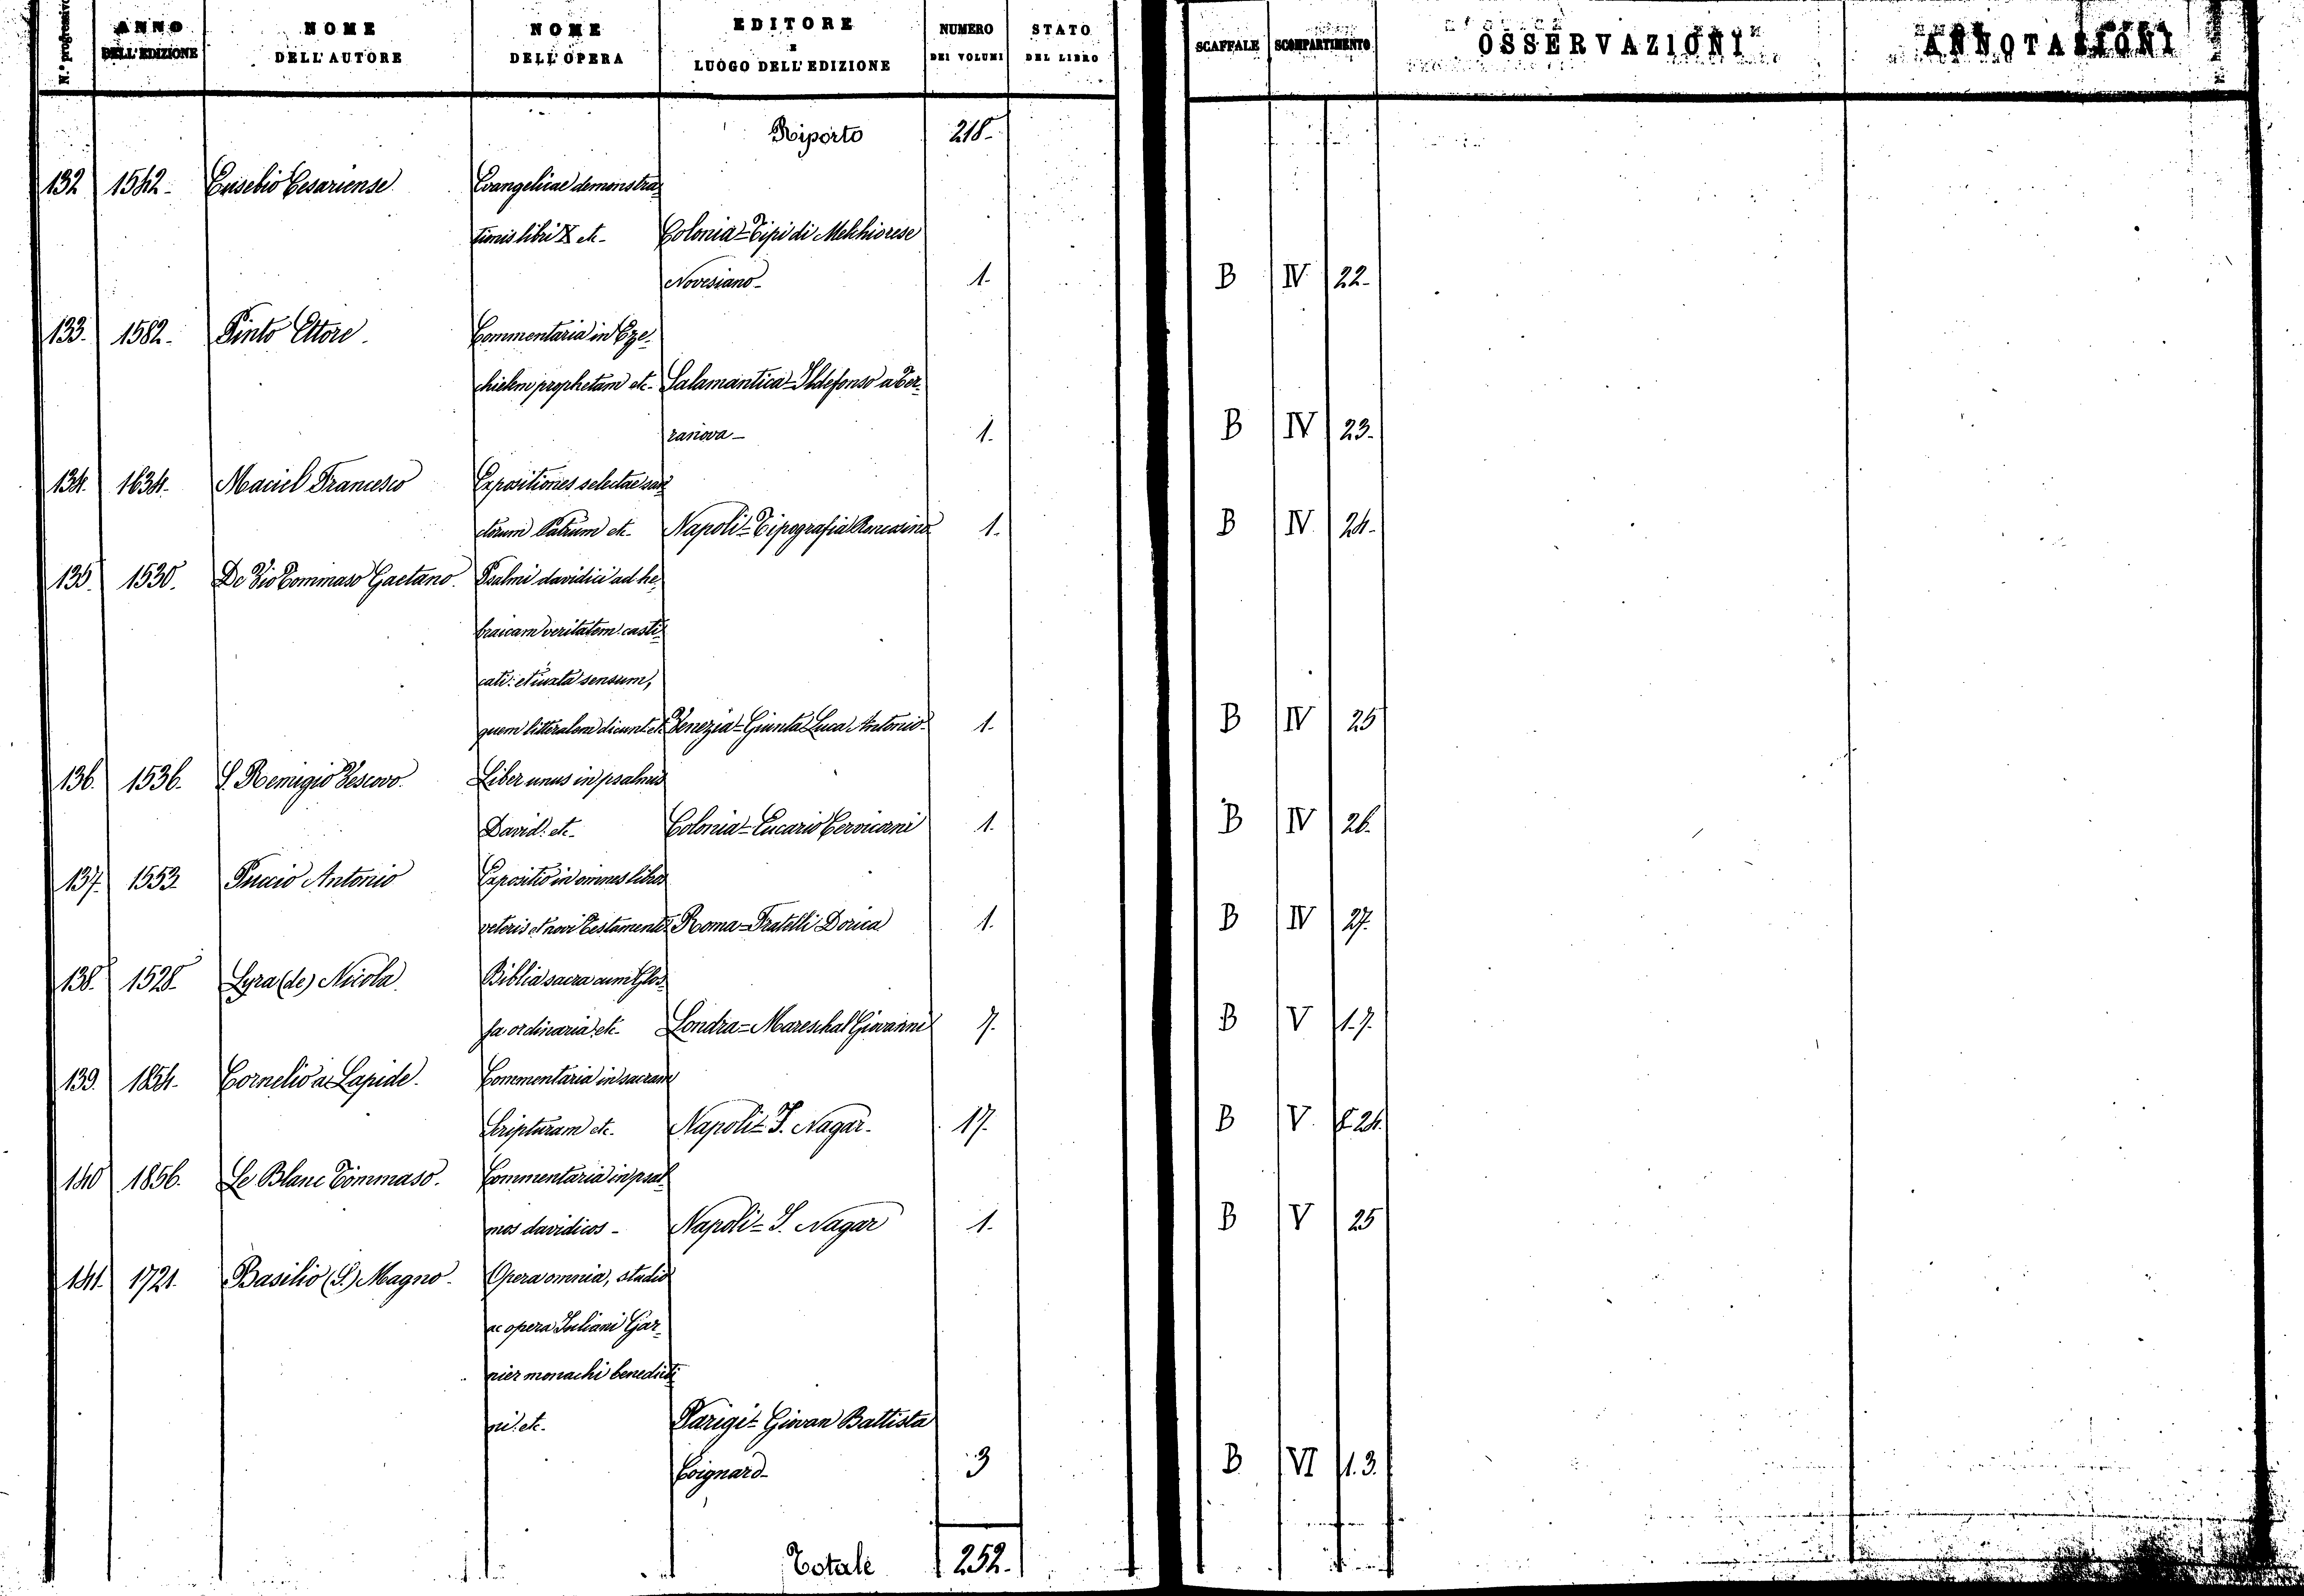 N.° progressivo | ANNO DELL'EDIZIONE | NOME DELL'AUTORE | NOME DELL'OPERA | EDITORE E LUOGO DELL'EDIZIONE | NUMERO DEI VOLUMI | STATO DEL LIBRO | SCAFFALE | SCOMPARTIMENTO | OSSERVAZIONI | ANNOTAZIONI
Riporto 218-
132 1542- Eusebio Cesariense Evangelicae demonstra-
tionis libri X etc- Colonia=Tipi di Melchiorese
Novesiano- 1- B IV 22-
133- 1582- Pinto Ettore. Commentaria in Eze-
chielem prophetam etc- Salamantica=Ildefonso a Ter-
ranova- 1. B IV 23-
134. 1634- Maciel Francesco Expositiones selectae san-
ctorum Patrum etc- Napoli=Tipografia 1. B IV 24-
135. 1530. De Vio Tommaso Gaetano. Psalmi davidici ad he-
braicam veritatem casti-
cati: et iuxta sensum,
quem litteralem dicunt etc Venezia=Giunta Luca Antonio- 1- B IV 25
136. 1536- S. Remigio Vescovo. Liber unus in psalmos
David: etc- Colonia=Eucario Cervicorni 1- B IV 26.
137. 1553 Puccio Antonio Expositio in omnes libros
veteris et novi Testamenti Roma=Fratelli Dorica 1. B IV 27.
138. 1528- Lyra (de) Nicola. Biblia sacra cum Glos-
sa ordinaria etc- Londra=Mareschal Giovanni 7. B V 1.7.
139. 1854- Cornelio a Lapide. Commentaria in sacram
Scripturam etc- Napoli=J. Nagar. 17. B V. 8.24.
140 1856. Le Blanc Tommaso. Commentaria in psal-
mos davidicos- Napoli=J. Nagar 1- B V 25
141. 1721. Basilio (S.) Magno- Opera omnia, studio
ac opera Juliani Gar-
nier monachi benedicti-
ni: etc- Parigi=Giovan Battista
Coignard- 3 B VI 1.3.
Totale 252.